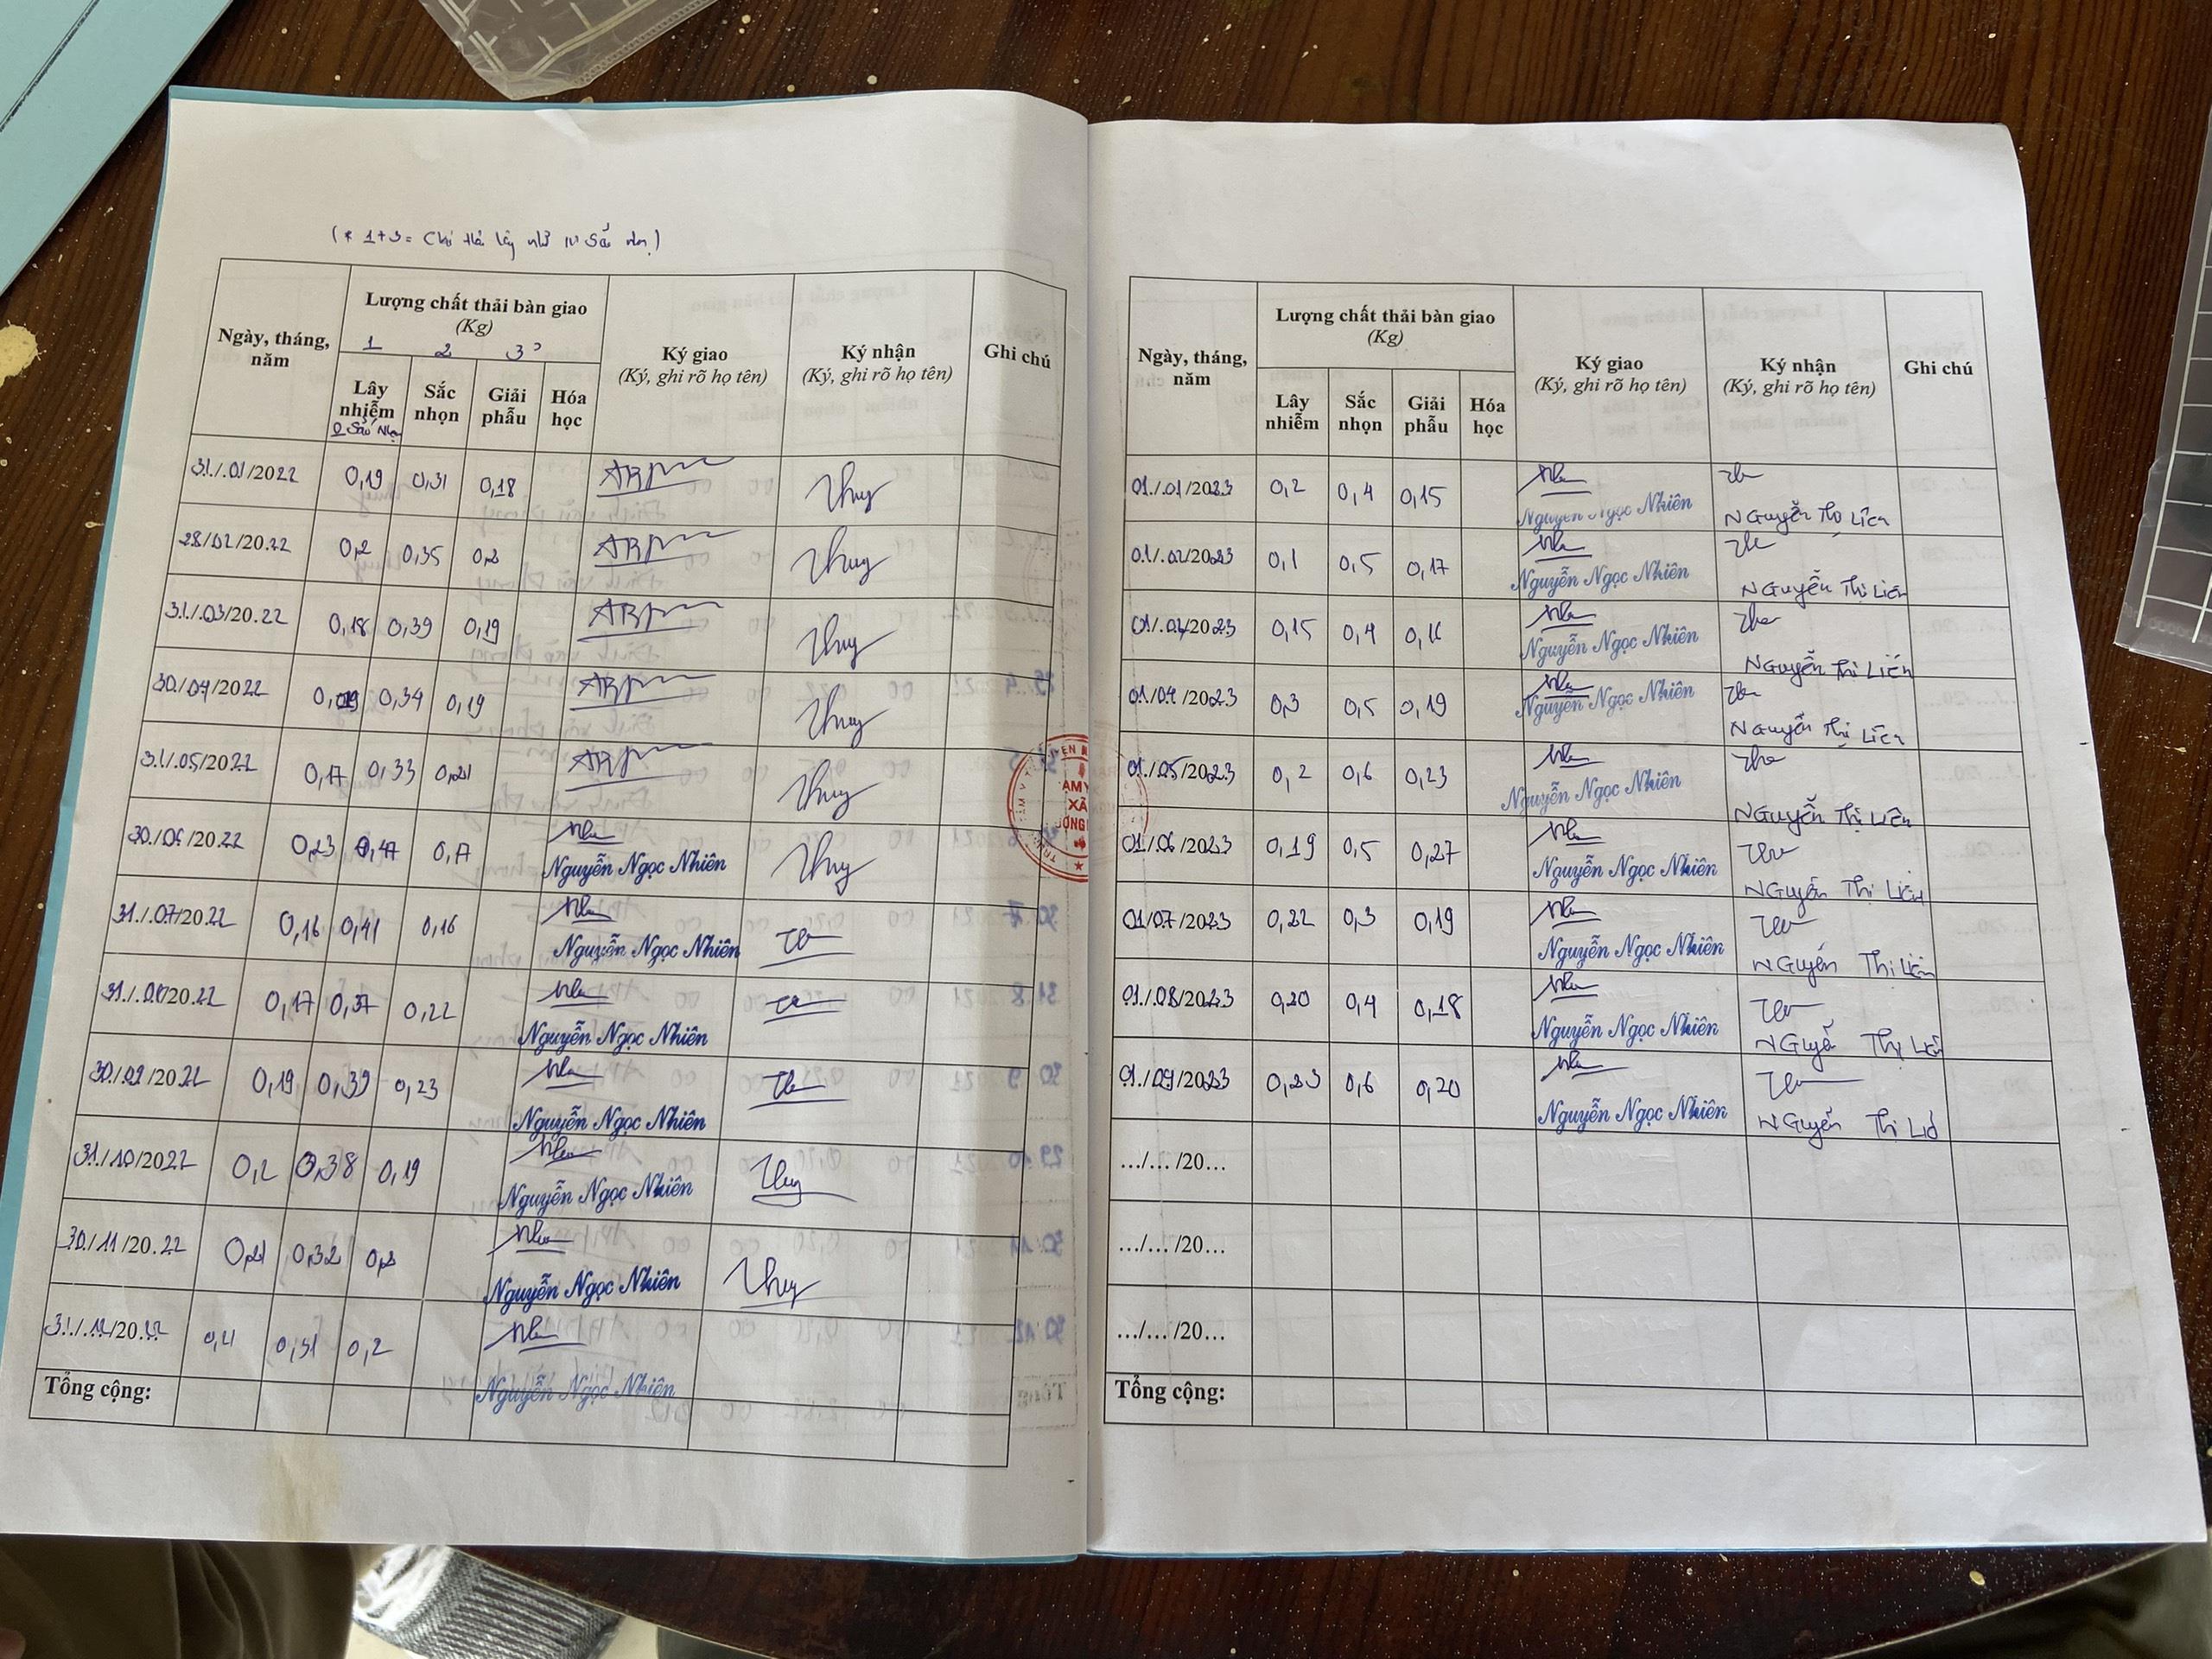 Lượng chất thải bàn giao
(Kg)
1 2 3
Ngày, tháng, năm
Lây nhiễm
Sắc nhọn
Giải phẫu
Hóa học
Ký giao
(Ký, ghi rõ họ tên)
Ký nhận
(Ký, ghi rõ họ tên)
Ghi chú
31/01/2022 0,19 0,31 0,18 Thuy
28/02/2022 0,2 0,35 0,2 Thuy
31/03/2022 0,18 0,39 0,19 Thuy
30/04/2022 0,34 0,19 Thuy
31/05/2022 0,17 0,33 Thuy
30/06/2022 0,23 0,17 Nguyễn Ngọc Nhiên Thuy
31/07/2022 0,16 0,41 0,16 Nguyễn Ngọc Nhiên
31/08/2022 0,17 0,37 0,22 Nguyễn Ngọc Nhiên
30/09/2022 0,19 0,39 0,23 Nguyễn Ngọc Nhiên
31/10/2022 0,2 0,38 0,19 Nguyễn Ngọc Nhiên Thuy
30/11/2022 0,21 0,32 0,2 Nguyễn Ngọc Nhiên Thuy
31/12/2022 0,2 Nguyễn Ngọc Nhiên
Tổng cộng:
Lượng chất thải bàn giao
(Kg)
Ngày, tháng, năm
Lây nhiễm
Sắc nhọn
Giải phẫu
Hóa học
Ký giao
(Ký, ghi rõ họ tên)
Ký nhận
(Ký, ghi rõ họ tên)
Ghi chú
01/01/2023 0,2 0,4 0,15 Nguyễn Ngọc Nhiên Nguyễn Thị Liên
01/02/2023 0,1 0,5 0,17 Nguyễn Ngọc Nhiên Nguyễn Thị Liên
2023 0,15 0,4 Nguyễn Ngọc Nhiên Nguyễn Thị Liên
01/04/2023 0,3 0,5 0,19 Nguyễn Ngọc Nhiên Nguyễn Thị Liên
01/05/2023 0,2 0,6 0,23 Nguyễn Ngọc Nhiên Nguyễn Thị Liên
01/06/2023 0,19 0,5 0,27 Nguyễn Ngọc Nhiên Nguyễn Thị Liên
01/07/2023 0,22 0,3 0,19 Nguyễn Ngọc Nhiên Nguyễn Thị Liên
01/08/2023 0,20 0,4 0,18 Nguyễn Ngọc Nhiên Nguyễn Thị Liên
01/09/2023 0,23 0,6 0,20 Nguyễn Ngọc Nhiên Nguyễn Thị
.../... /20...
.../... /20...
.../... /20...
Tổng cộng: